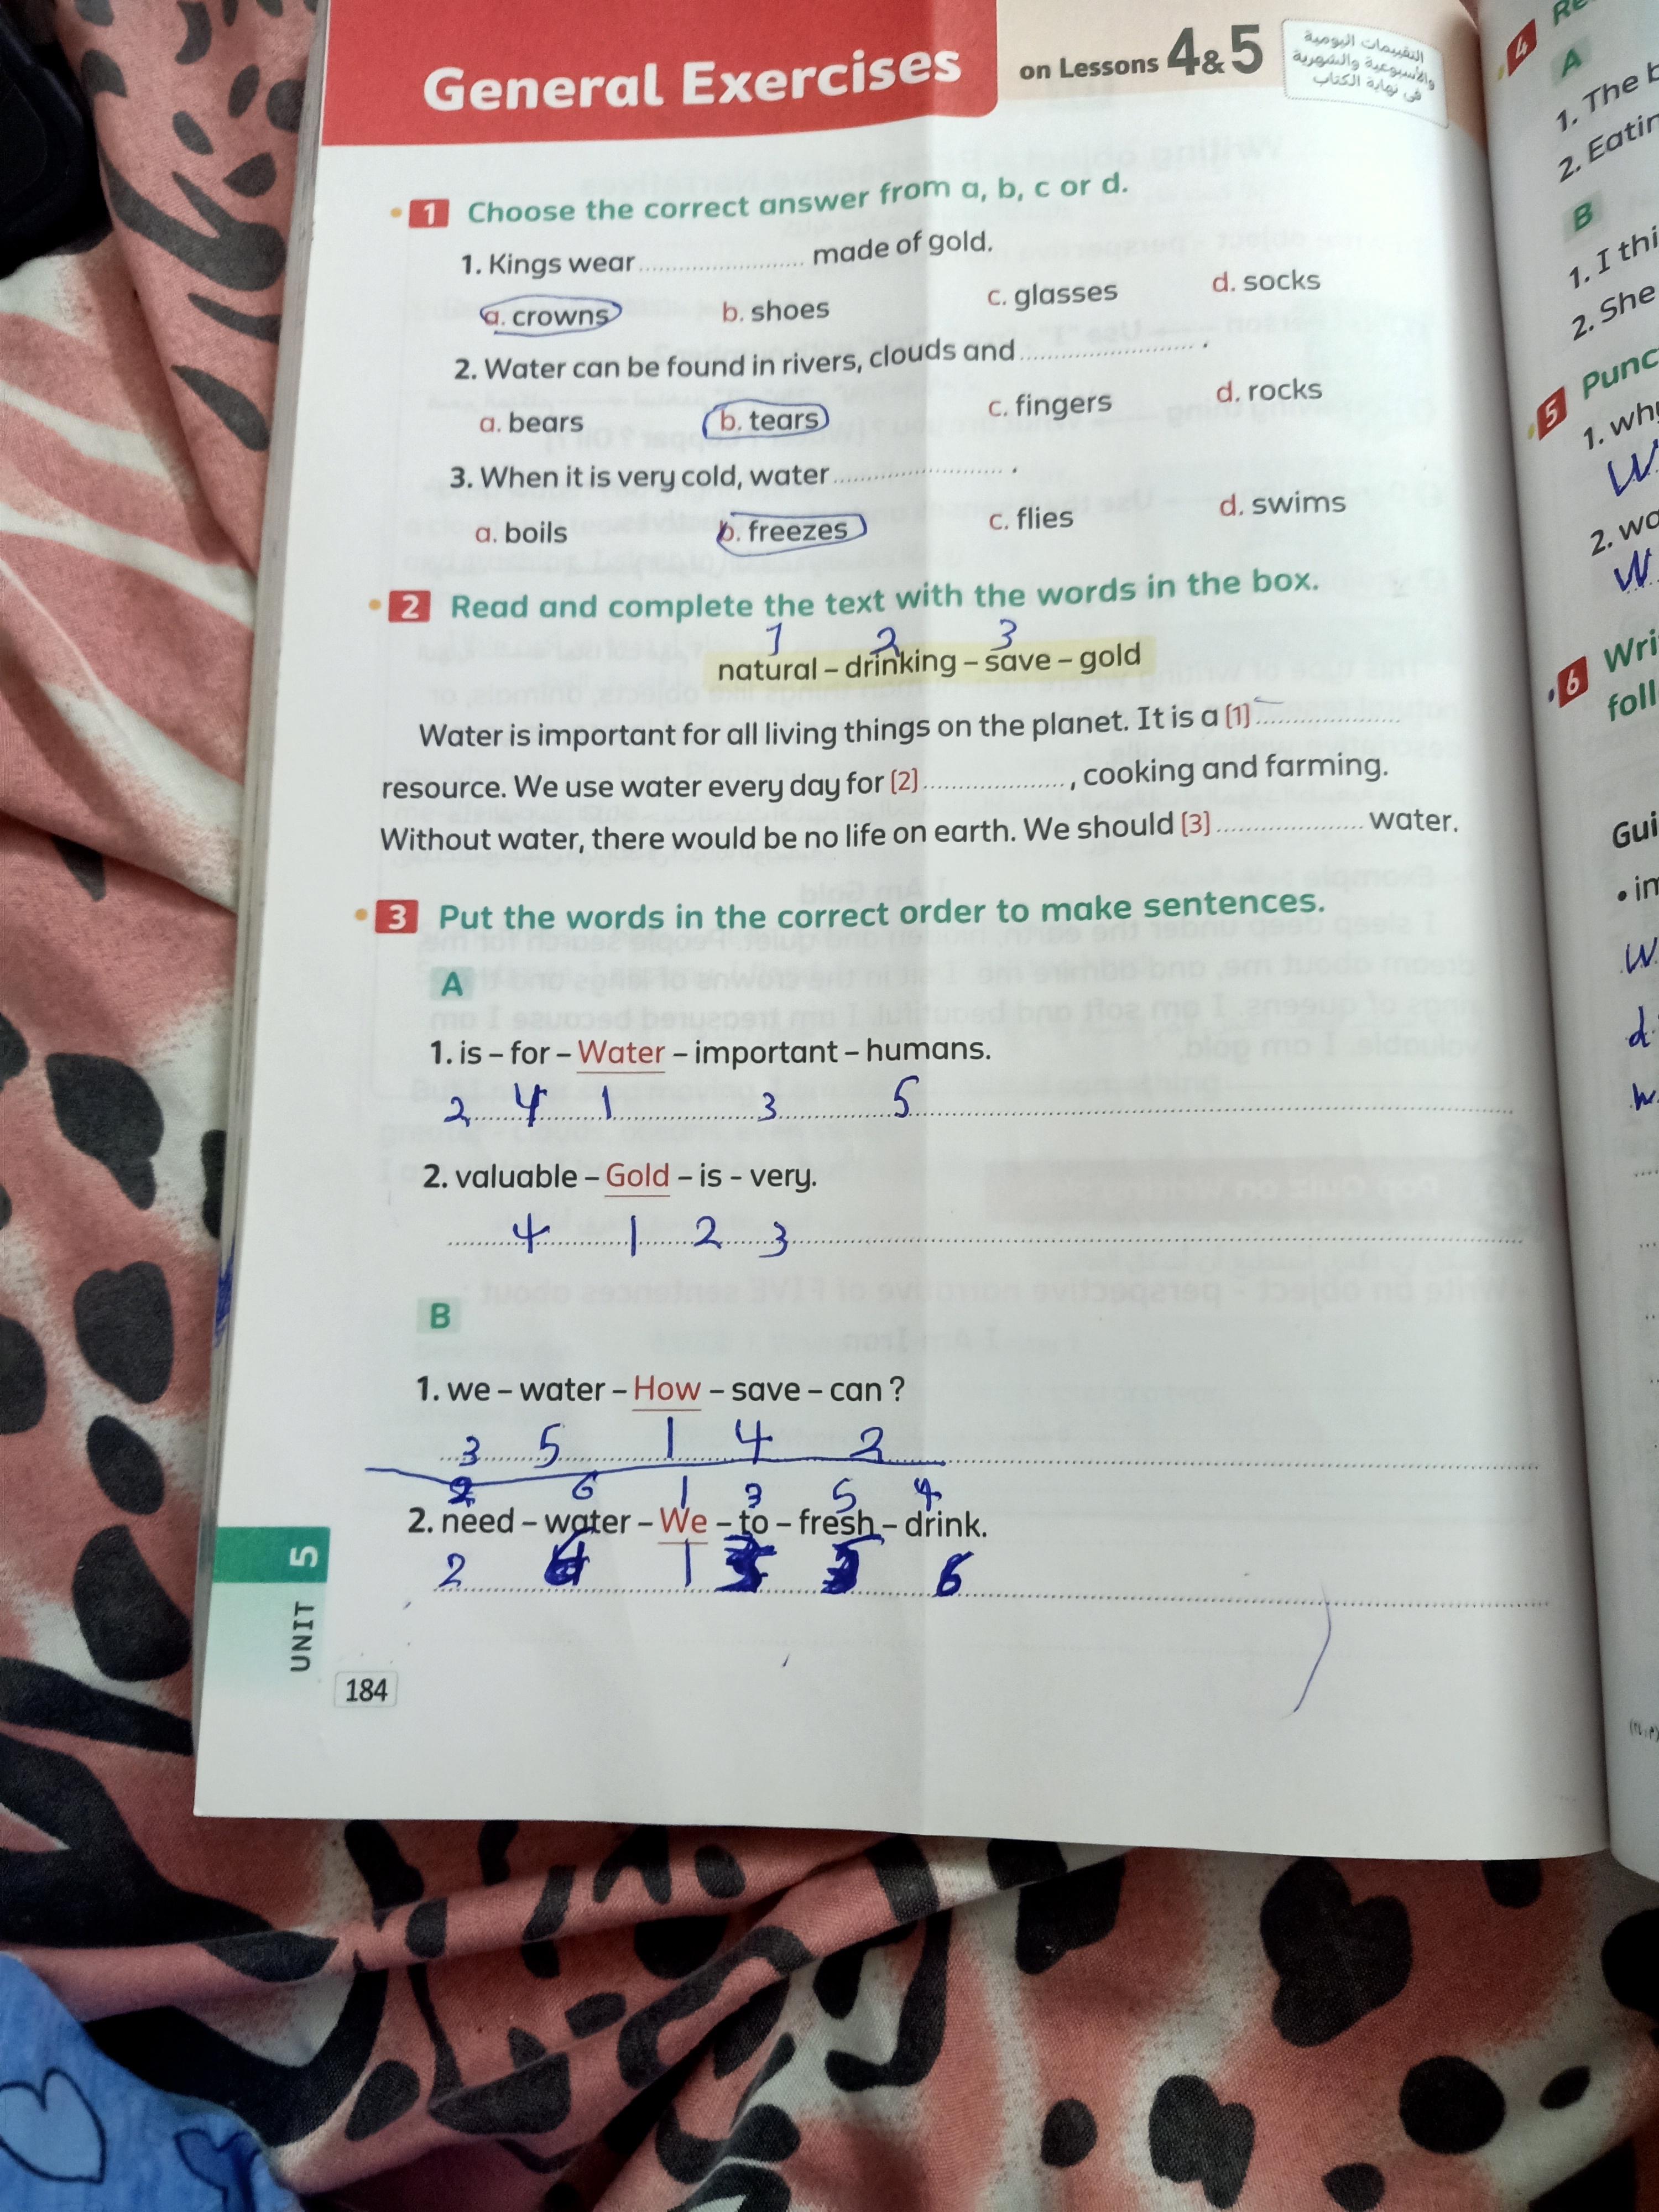 General Exercises on Lessons 4&5
التقييمات اليومية
والأسبوعية والشهرية
فى نهاية الكتاب
1 Choose the correct answer from a, b, c or d.
1. Kings wear .................... made of gold.
a. crowns b. shoes c. glasses d. socks
2. Water can be found in rivers, clouds and .................... .
a. bears b. tears c. fingers d. rocks
3. When it is very cold, water .................... .
a. boils b. freezes c. flies d. swims
2 Read and complete the text with the words in the box.
1 2 3
natural – drinking – save – gold
Water is important for all living things on the planet. It is a (1) ....................
resource. We use water every day for (2) .................... , cooking and farming.
Without water, there would be no life on earth. We should (3) .................... water.
3 Put the words in the correct order to make sentences.
A
1. is – for – Water – important – humans.
2 4 1 3 5
2. valuable – Gold – is - very.
4 1 2 3
B
1. we – water – How – save – can ?
3 5 1 4 2
2 6 1 3 5 4
2. need – water – We – to – fresh – drink.
2 1 6
UNIT 5
184
4
A
1. The
2.
B
1. I
2. She
5
1.
2.
6